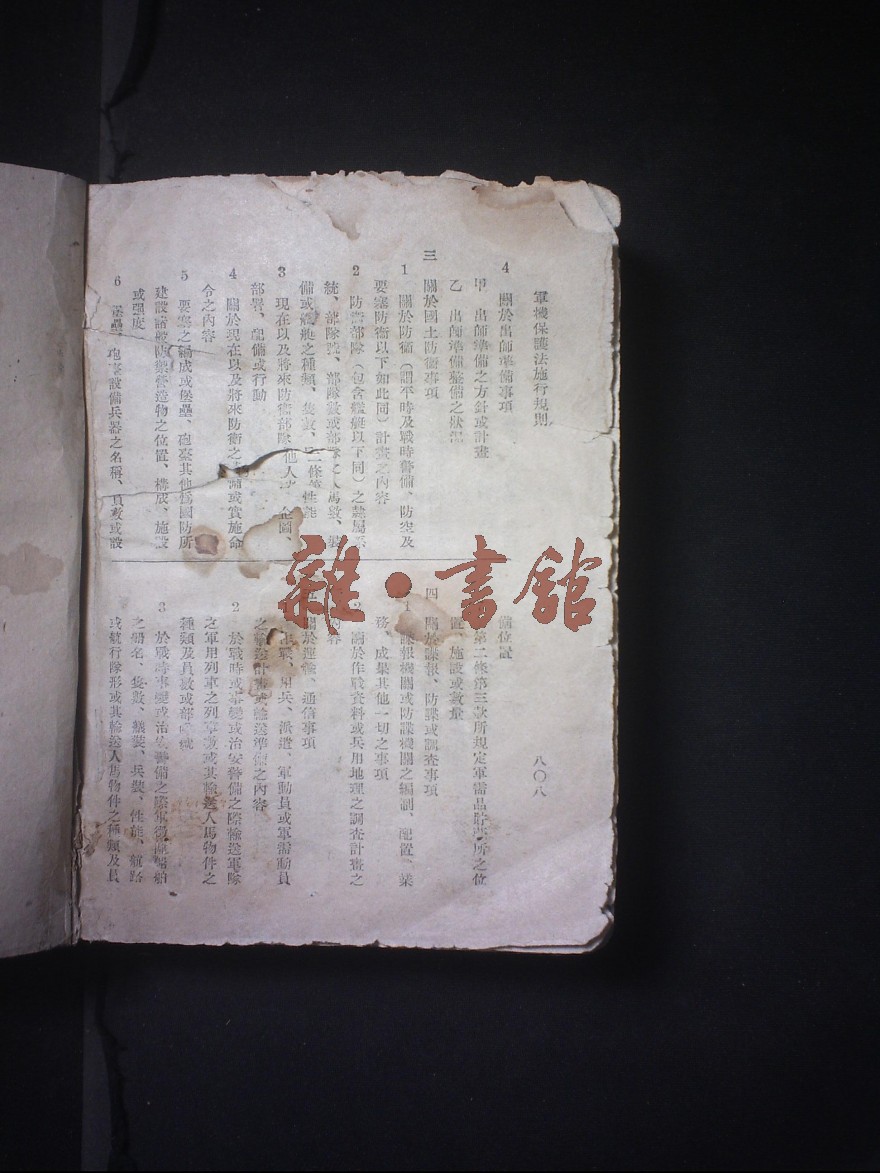 軍機保護法施行規則
八〇八
4 關於出師準備事項
甲 出師準備之方針或計畫
乙 出師準備整備之狀況
三 關於國土防衛事項
1 關於防衛(謂平時及戰時警備、防空及
要塞防衛以下如此同)計畫之內容
2 防衛部隊(包含艦艇以下同)之隸屬系
統、部隊號、部隊數或部隊之人馬數、裝
備或艦艇之種類、隻數、
性能
3 現在以及將來防衛部隊
企圖、
部署、配備或行動
4 關於現在以及將來防衛之
備或實施命
令之內容
5 要塞之編成或堡壘、砲臺其他為國防所
建設諸般防禦營造物之位置、構成、施設
或强度
6
砲臺設備兵器之名稱、員數或設
備位置
第二條第三款所規定軍需品貯藏所之位
置、施設或數量
四 關於諜報、防諜或調查事項
1 諜報機關或防諜機關之編制、配置、業
務、成果其他一切之事項
2 關於作戰資料或兵用地理之調查計畫之
內容
關於運輸、通信事項
用兵、派遣、軍動員或軍需動員
之輸送計畫或輸送準備之內容
2 於戰時或事變或治安警備之際輸送軍隊
之軍用列車之列車數或其輸送人馬物件之
種類及員數或部隊號
3 於戰時事變或治安警備之際軍
船舶
之船名、隻數、艤裝、兵裝、性能、航路
或航行隊形或其輸送人馬物件之種類及員
雜·書館